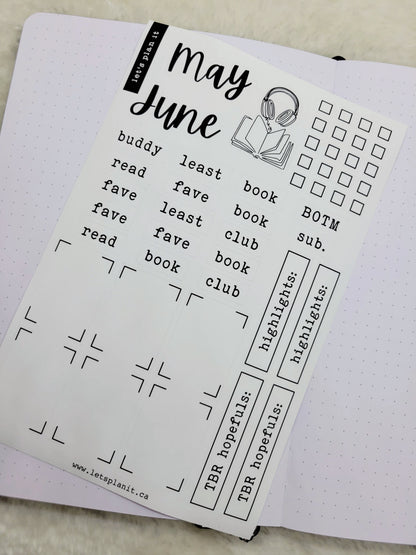 let's plan it
May
June
buddy least book
read fave book
fave least club
fave fave book
read book club
BOTM
sub.
highlights:
highlights:
TBR hopefuls:
TBR hopefuls:
www.letsplanit.ca